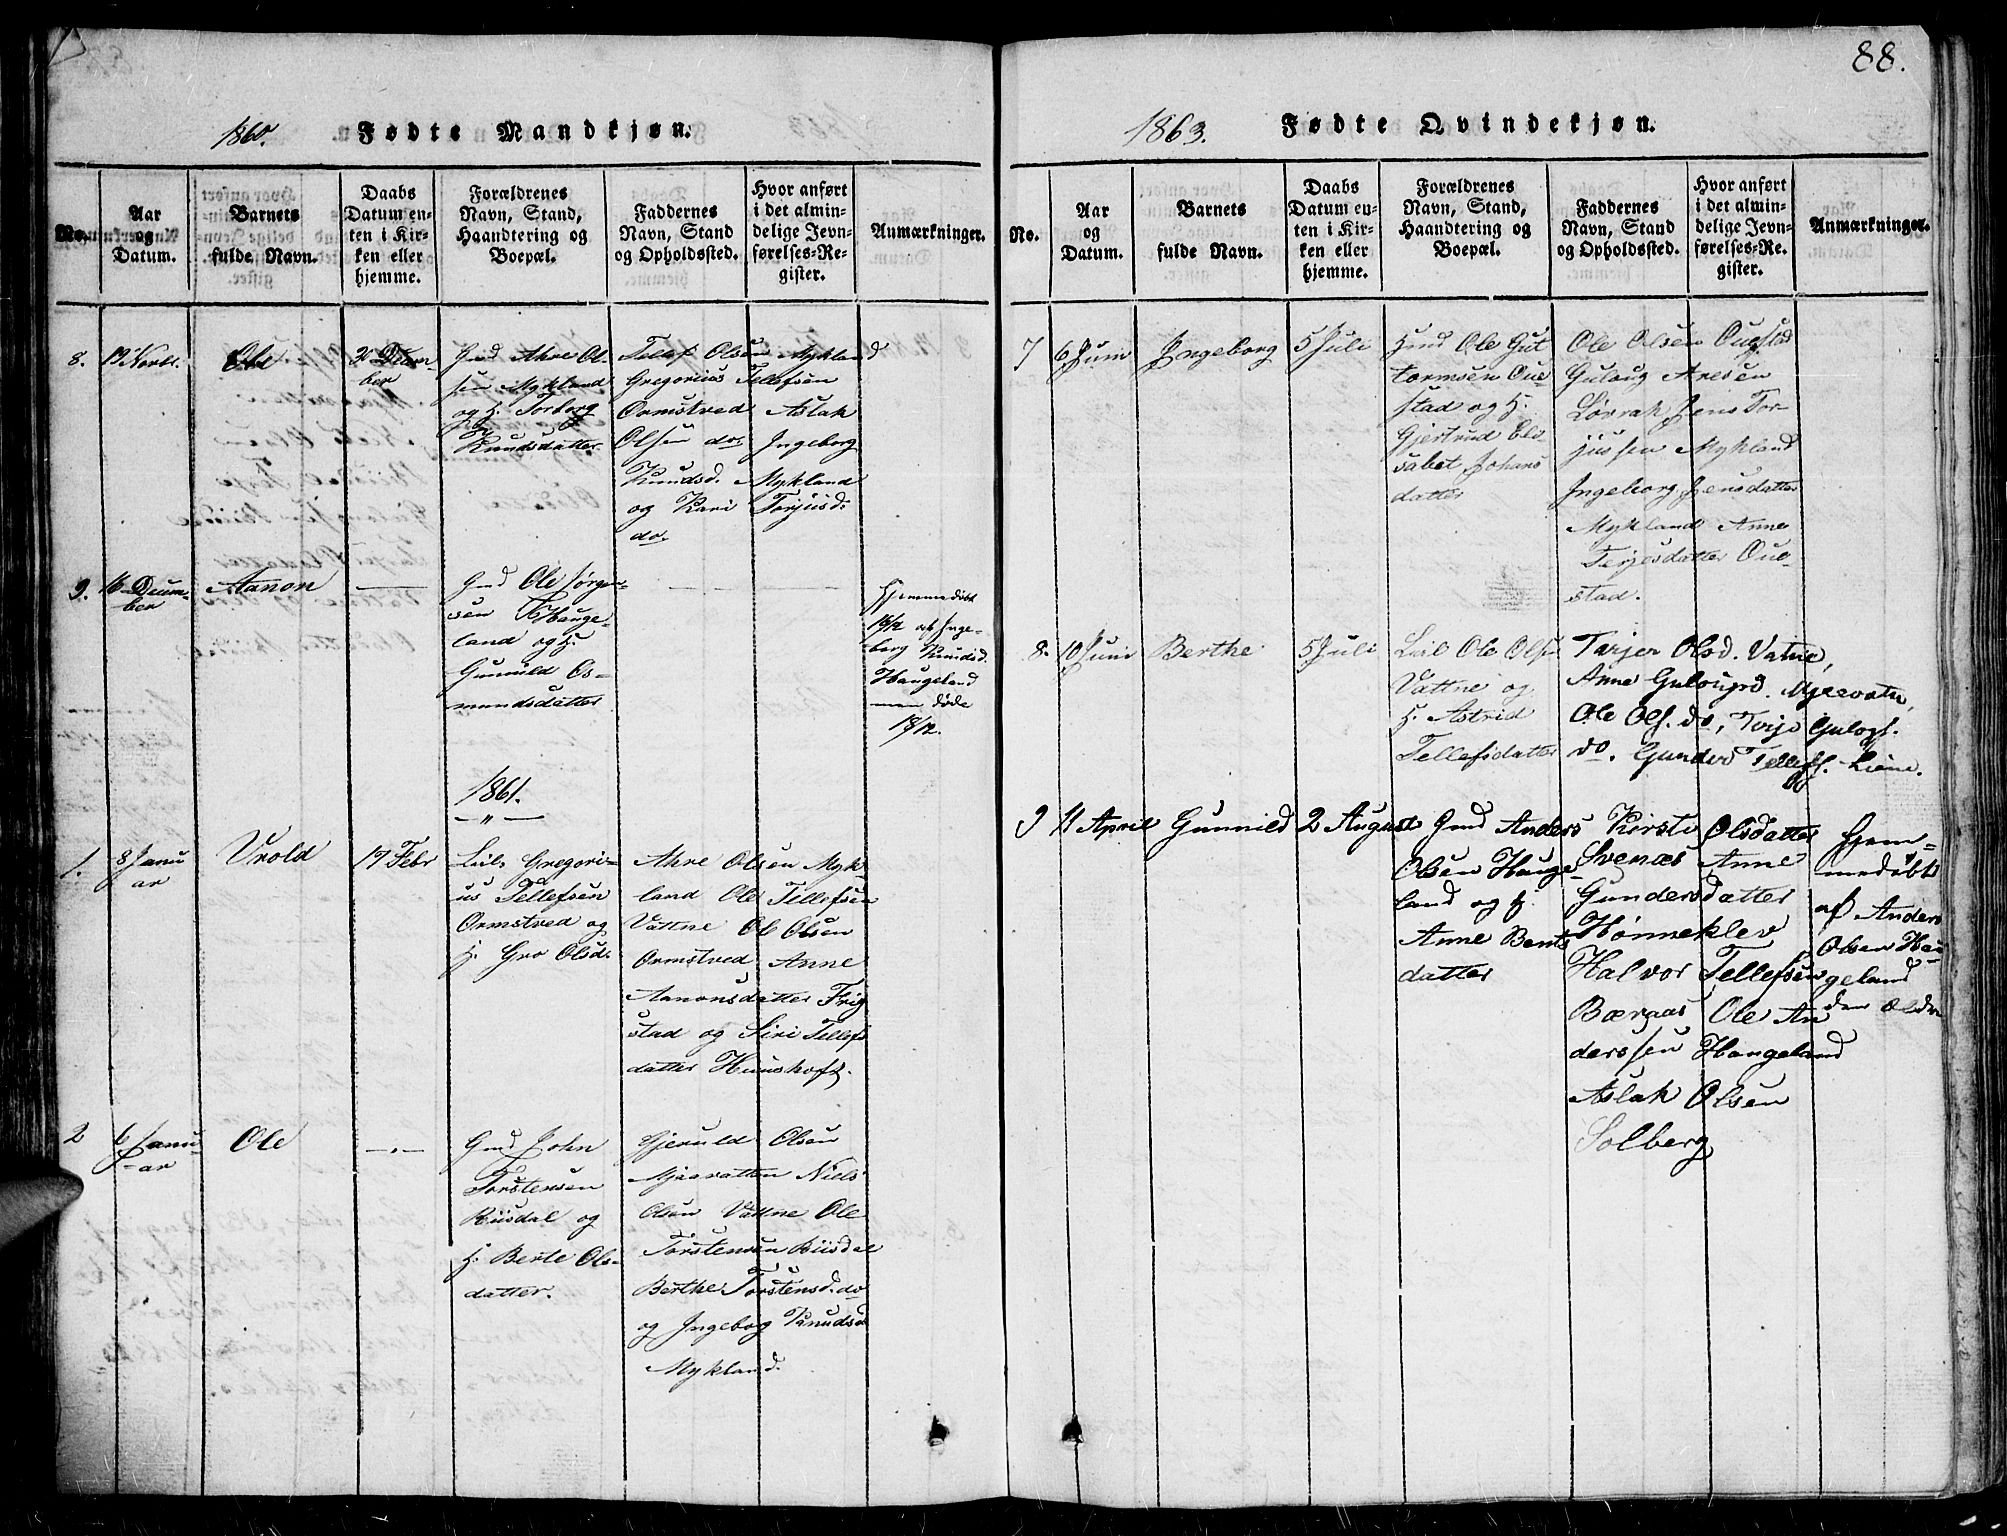 88.
1860. Fødte Mandkjøn.
No.
Aar og Datum.
Barnets fulde Navn.
Daabs Datum enten i Kirken eller hjemme.
Forældrenes Navn, Stand, Haandtering og Boepæl.
Faddernes Navn, Stand og Opholdssted.
Hvor anført i det almindelige Jevnførelses-Register.
Anmærkninger.
8.
19 Novbr.
Ole
Gmd Ahre Ol-
sen Mykland
og H. Torborg
Knudsdatter
Tellef Olsen Mykland
Gregorius Tellefsen
Ormstved Aslak
Olsen do. Ingeborg
Knudsd. Mykland
og Kari Torjusd.
do.
9.
16 Decem-
ber
Aanon
Gmd Ole Jørgen-
sen Hauge-
land og H.
Gunnild Os-
mundsdatter
Hjemmedøbt
af Inge-
borg Knudsd.
Haugeland
men døde
18/12.
1861.
1.
8 Janu
ar
Vrold
17 Febr
Leil. Gregori-
us Tellefsen
Ormstved og
H. Gro Olsd.
Ahre Olsen Myk-
land Ole Tellefsen
Vattne Ol Olsen
Ormstved Anne
Aanonsdatter Frig
stad og Siri Tellefs
datter
2
6 Janu-
ar
Ole
Gmd John
Torstensen
Riisdal og
H. Berte Ols-
datter.
Gjeruld Olsen
Mjaavatten Niels
Olsen Vattne Ole
Torstensen Riisdal
Berthe Torstensd. do
og Ingeborg Knudsd
Mykland.
1863. Fødte Qvindekjøn.
No.
Aar og Datum.
Barnets fulde Navn.
Daabs Datum enten i Kirken eller hjemme.
Forældrenes Navn, Stand, Haandtering og Boepæl.
Faddernes Navn, Stand og Opholdssted.
Hvor anført i det almindelige Jevnførelses-Register.
Anmærkninger.
7
6 Juni
Ingeborg
5 Juli
Gmd Ole Gut
tormsen Oue
stad og H.
Gjertrud Eli
sabet Johans
datter
Ole Olsen Ouestad
Guloug Aresen
Løvrak Jens Tor-
jussen Mykland
Ingeborg Jensdatter
Mykland Anne
Terjesdatter Oue-
stad.
8.
10 Juni
Berthe
5 Juli
Leil Ole Olsen
Vattne og
H. Astrid
Tellefsdatter
Tarjer Olsd. Vatne,
Anne Gulougsd. Mjaavatn,
Ole Ols. do, Terje Gulogs.
do. Gunder Tellefs. Liene.
9
11 April
Gunnild
2 August
Gmd Anders
Olsen Hauge
land og H.
Anne Bents
datter
Kirsti Olsdatter
Svenæs Anne
Gundersdatter
Hønneklev
Halvor Tellefsen
Bæraas Ole An
derssen Haugeland
Aslak Olsen
Solberg
Hjem-
medøbt
af Anders
Olsen Hau
geland